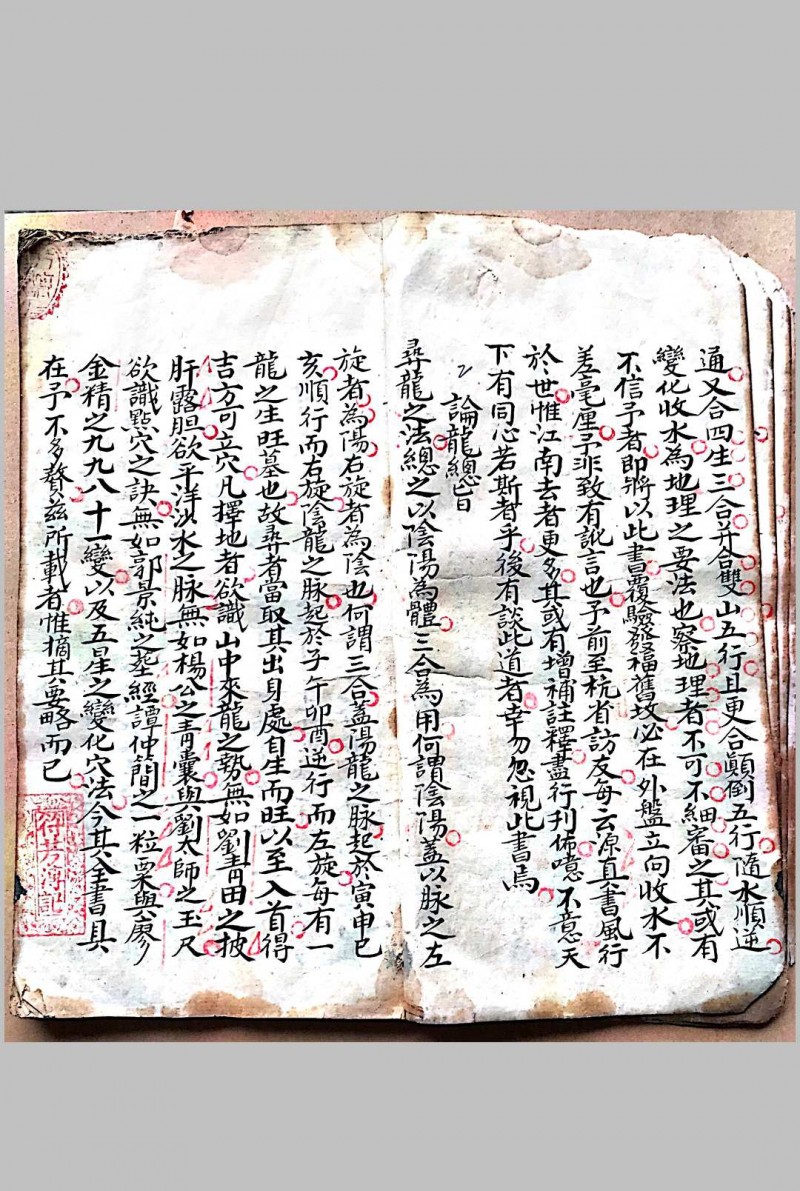 通又合四生三合并合雙山五行且更合顛倒五行隨水順逆
變化收水為地理之要法也察地理者不可不細審之其或有
不信予者即將以此書覆驗發福舊坟必在外盤立向收水不
差毫厘予非致有訛言也予前至杭省訪友每云原直書風行
於世惟江南去者更多其或有增補註釋盡行刊佈噫不意天
下有同心若斯者乎後有談此道者幸勿忽視此書焉
論龍總旨
尋龍之法總之以陰陽為體三合為用何謂陰陽蓋以脉之左
旋者為陽右旋者為陰也何謂三合蓋陽龍之脉起於寅申巳
亥順行而右旋陰龍之脉起於子午卯酉逆行而左旋每有一
龍之生旺墓也故尋者當取其出身處自生而旺以至入首得
吉方可立穴凡擇地者欲識山中來龍之勢無如劉青田之披
肝露胆欲平洋淤水之脉無如楊公之青囊與劉太師之玉尺
欲識點穴之訣無如郭景純之塟經譚仲簡之一粒粟與廖
金精之九九八十一變以及五星之變化穴法今其全書具
在予不多贅茲所載者惟摘其要略而已